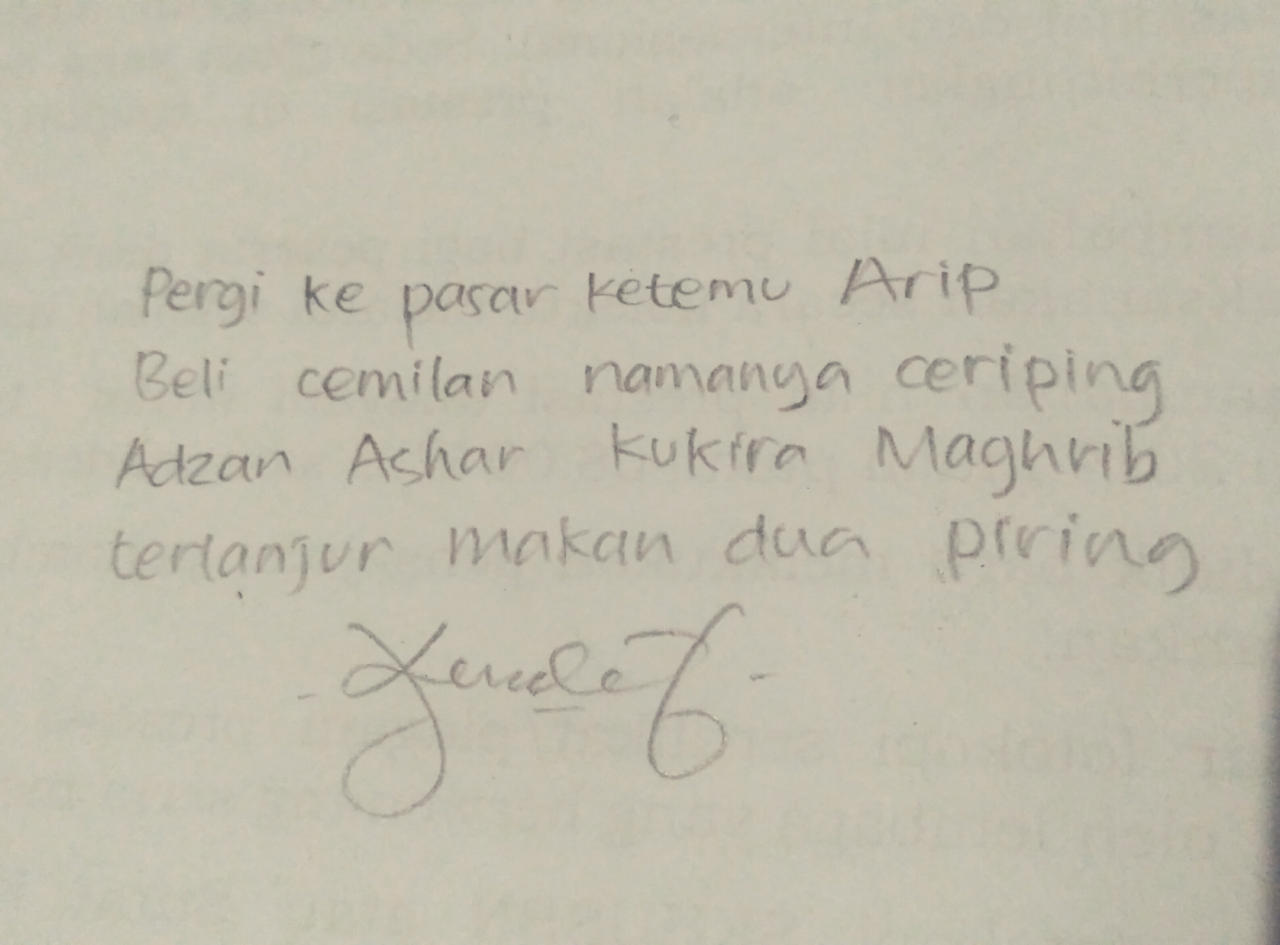 Pergi ke pasar ketemu Arip
Beli cemilan namanya ceriping
Adzan Ashar kukira Maghrib
terlanjur makan dua piring